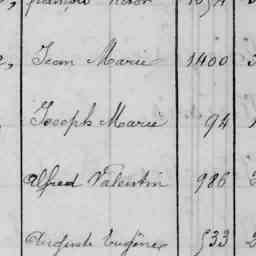 François Victor
Jean Marie 1400
Joseph Marie 94
Alfred Valentin 986
Auguste Eugène 533